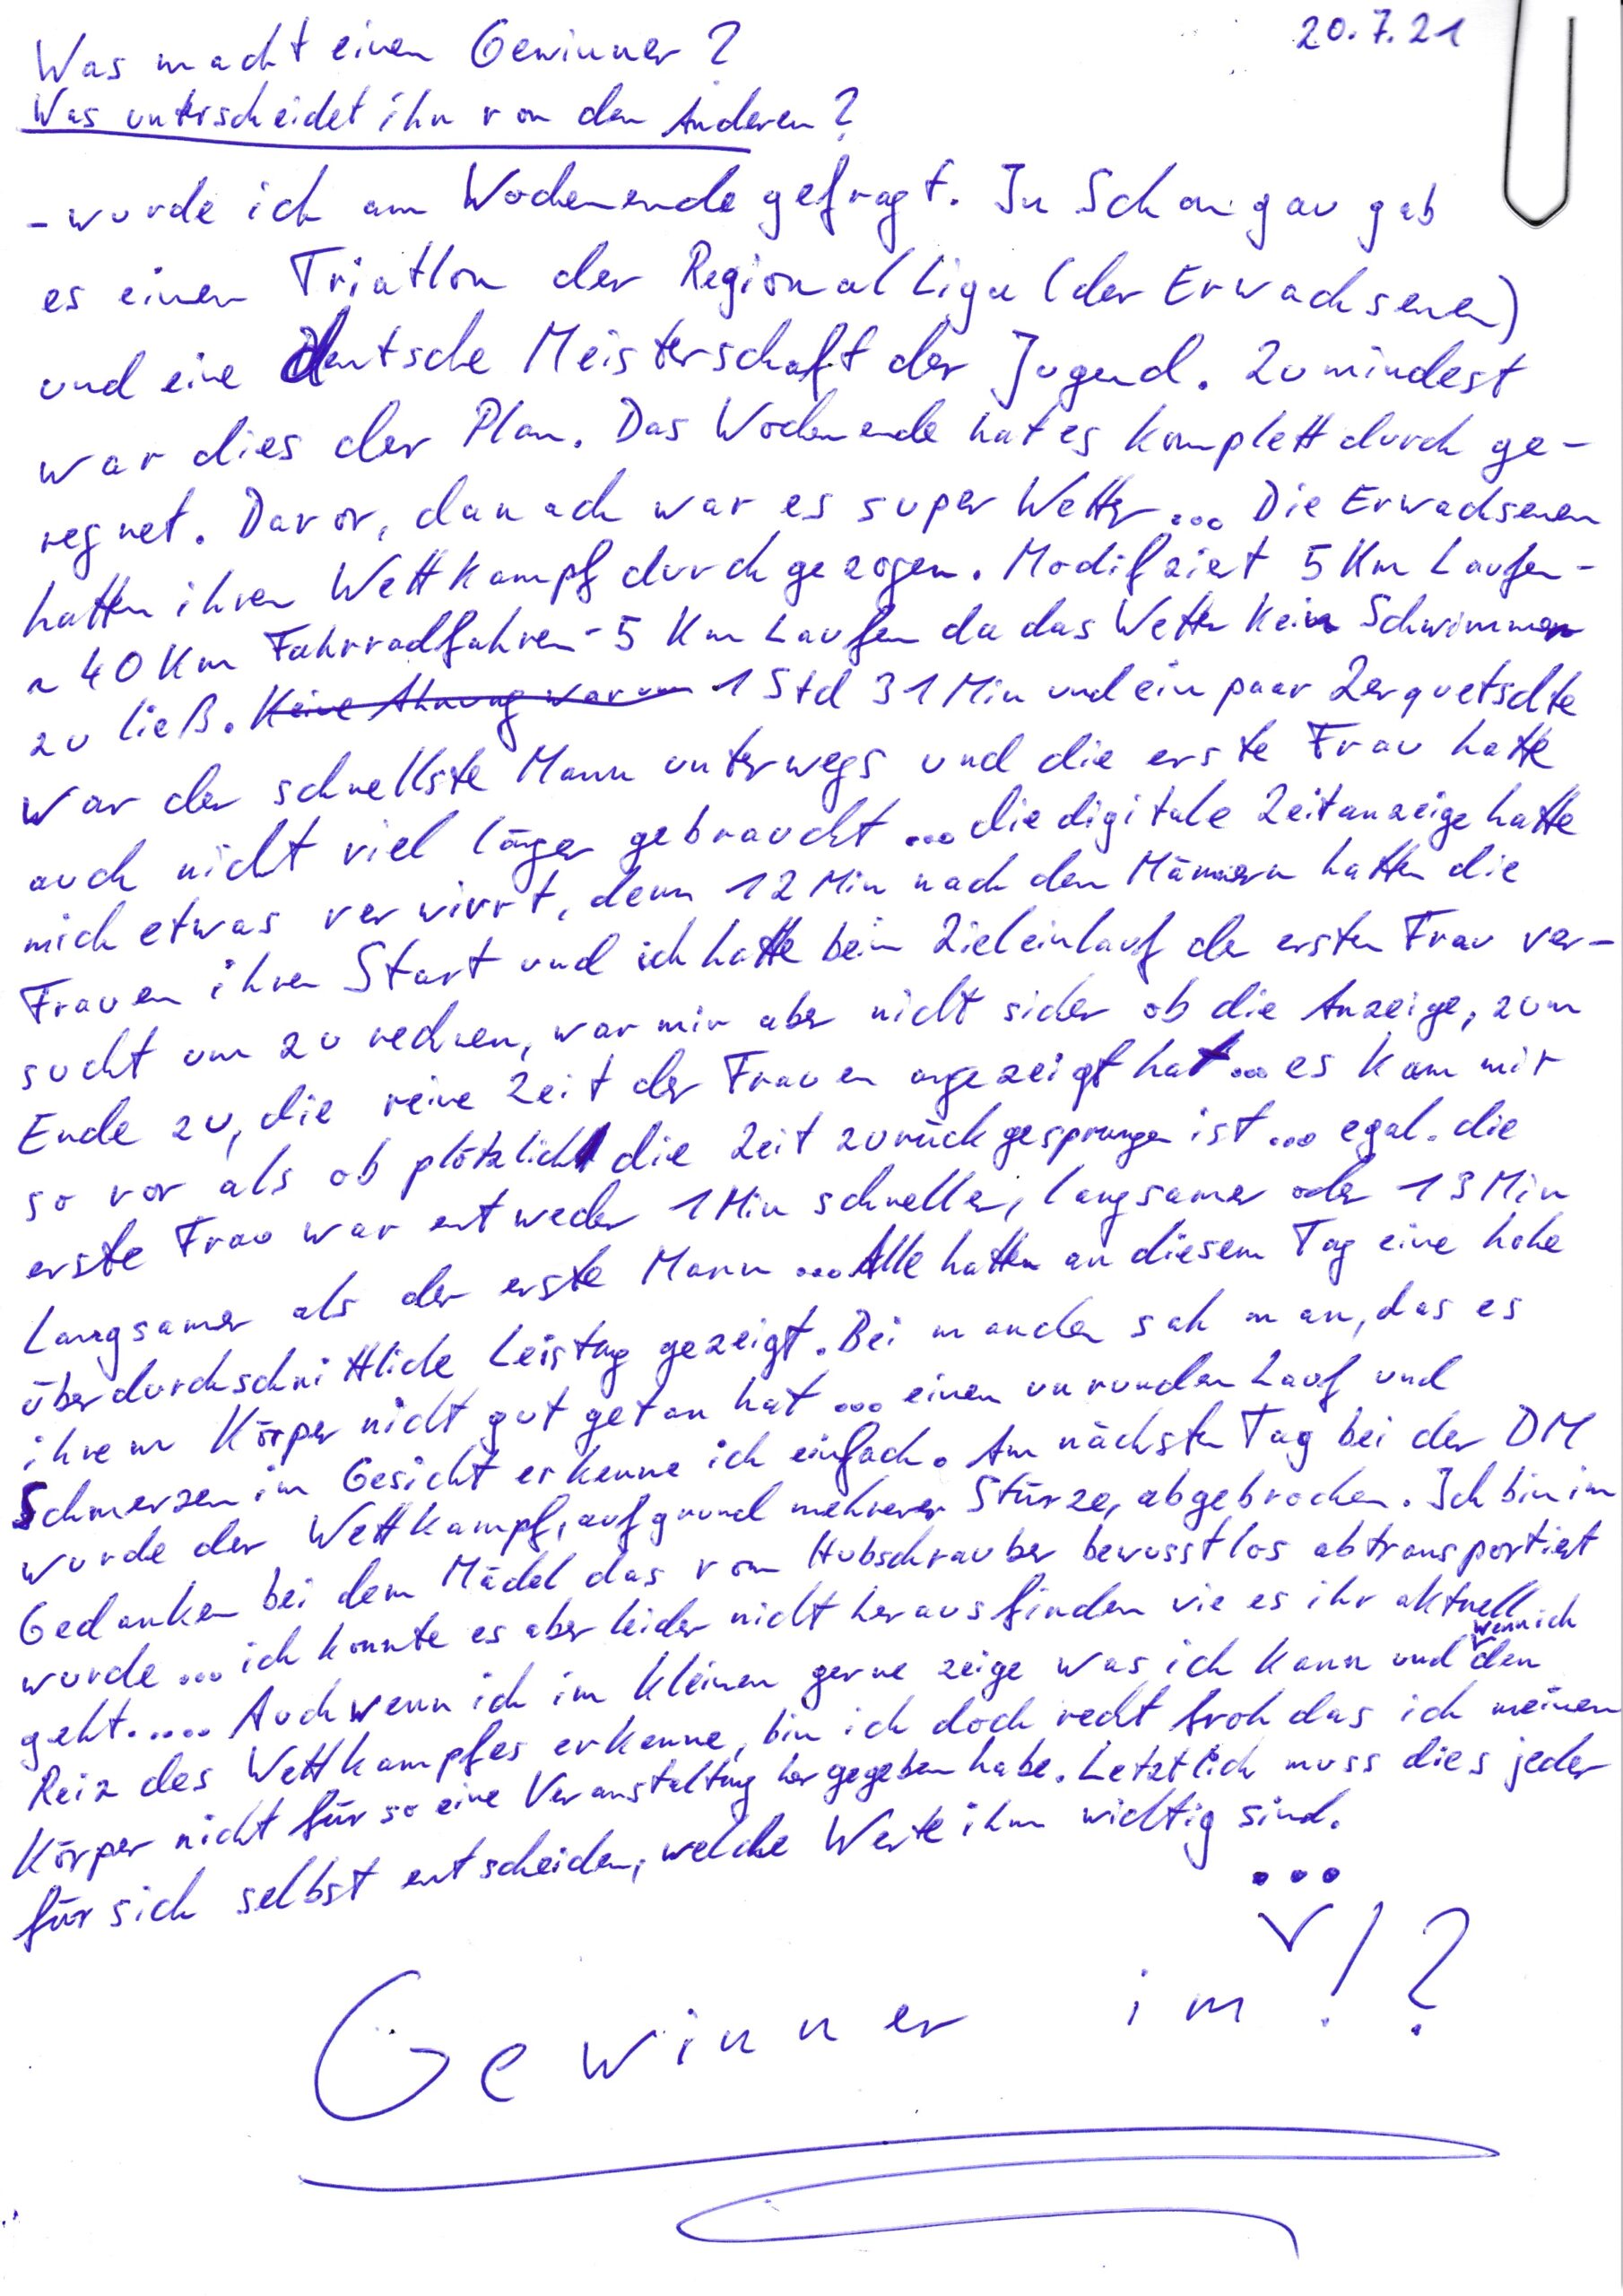 20.7.21
Was macht einen Gewinner?
Was unterscheidet ihn von den Anderen?
- wurde ich am Wochenende gefragt. In Schongau gab
es einen Triatlon der Regional Liga (der Erwachsenen)
und eine deutsche Meisterschaft der Jugend. Zumindest
war dies der Plan. Das Wochenende hat es komplett durch ge-
regnet. Davor, danach war es super Wetter... Die Erwachsenen
hatten ihren Wettkampf durchgezogen. Modifziert 5 Km Laufen -
~ 40 Km Fahrradfahren - 5 Km Laufen da das Wetter kein Schwimmen
zu ließ. Keine Ahnung warum 1 Std 31 Min und ein paar Zerquetschte
war der schnellste Mann unterwegs und die erste Frau hatte
auch nicht viel länger gebraucht ... die digitale Zeitanzeige hatte
mich etwas verwirrt, denn 12 Min nach den Männern hatten die
Frauen ihren Start und ich hatte beim Zieleinlauf der ersten Frau ver-
sucht um zu rechnen, war mir aber nicht sicher ob die Anzeige, zum
Ende zu, die reine Zeit der Frauen angezeigt hat ... es kam mir
so vor als ob plötzlich die Zeit zurück gesprungen ist ... egal. die
erste Frau war entweder 1 Min schneller, langsamer oder 13 Min
Langsamer als der erste Mann ... Alle hatten an diesem Tag eine hohe
überdurchschnittliche Leistung gezeigt. Bei manchen sah man, das es
ihrem Körper nicht gut getan hat ... einen unrunden Lauf und
Schmerzen im Gesicht erkenne ich einfach. Am nächsten Tag bei der DM
wurde der Wettkampf, aufgrund mehrerer Stürze, abgebrochen. Ich bin im
Gedanken bei dem Mädel das vom Hubschrauber bewusstlos abtransportiert
wurde ... ich konnte es aber leider nicht herausfinden wie es ihr aktuell
geht..... Auch wenn ich im kleinen gerne zeige was ich kann und wenn ich den
Reiz des Wettkampfes erkenne, bin ich doch recht froh das ich meinen
Körper nicht für so eine Veranstaltung her gegeben habe. Letztlich muss dies jeder
für sich selbst entscheiden, welche Werte ihm wichtig sind.
...
Gewinner im !?